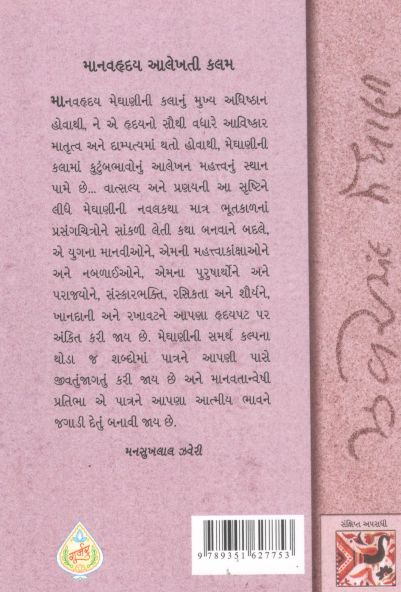 માનવહૃદય આલેખતી કલમ
માનવહૃદય મેઘાણીની કલાનું મુખ્ય અધિષ્ઠાન
હોવાથી, ને એ હૃદયનો સૌથી વધારે આવિષ્કાર
માતૃત્વ અને દામ્પત્યમાં થતો હોવાથી, મેઘાણીની
કલામાં કુટુંબભાવોનું આલેખન મહત્ત્વનું સ્થાન
પામે છે... વાત્સલ્ય અને પ્રણયની આ સૃષ્ટિને
લીધે મેઘાણીની નવલકથા માત્ર ભૂતકાળનાં
પ્રસંગચિત્રોને સાંકળી લેતી કથા બનવાને બદલે,
એ યુગના માનવીઓને, એમની મહત્ત્વાકાંક્ષાઓને
અને નબળાઈઓને, એમના પુરુષાર્થોને અને
પરાજયોને, સંસ્કારભક્તિ, રસિકતા અને શૌર્યને,
ખાનદાની અને રખાવટને આપણા હૃદયપટ પર
અંકિત કરી જાય છે. મેઘાણીની સમર્થ કલ્પના
થોડા જ શબ્દોમાં પાત્રને આપણી પાસે
જીવતુંજાગતું કરી જાય છે અને માનવતાન્વેષી
પ્રતિભા એ પાત્રને આપણા આત્મીય ભાવને
જગાડી દેતું બનાવી જાય છે.
મનસુખલાલ ઝવેરી
ગૂર્જર
9 789351 627753
ઝવેરચંદ મેઘાણી
સંક્ષિપ્ત અપરાધી